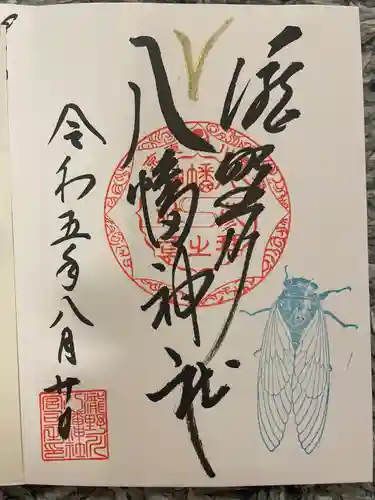 瀧野川
八幡神社
令和五年八月廿日